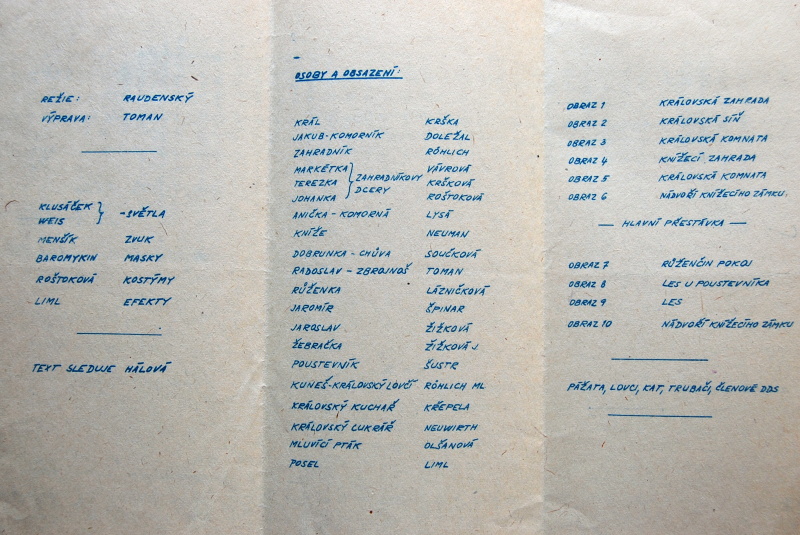 REŽIE: RAUDENSKÝ
VÝPRAVA: TOMAN
KLUSÁČEK
WEIS } -SVĚTLA
MENŠÍK ZVUK
BAROMYKIN MASKY
ROŠTOKOVÁ KOSTÝMY
LIML EFEKTY
TEXT SLEDUJE HÁLOVÁ
OSOBY A OBSAZENÍ:
KRÁL KRŠKA
JAKUB-KOMORNÍK DOLEŽAL
ZAHRADNÍK RÖHLICH
MARKÉTKA VÁVROVÁ
TEREZKA } ZAHRADNÍKOVY DCERY KRŠKOVÁ
JOHANKA ROŠTOKOVÁ
ANIČKA - KOMORNÁ LYSÁ
KNÍŽE NEUMAN
DOBRUNKA - CHŮVA SOUČKOVÁ
RADOSLAV - ZBROJNOŠ TOMAN
RŮŽENKA LÁZNIČKOVÁ
JAROMÍR ŠPINAR
JAROSLAV ŽIŽKOVÁ
ŽEBRAČKA ŽIŽKOVÁ J.
POUSTEVNÍK ŠUSTR
KUNEŠ-KRÁLOVSKÝ LOVČÍ RÖHLICH ML
KRÁLOVSKÝ KUCHAŘ KŘEPELA
KRÁLOVSKÝ CUKRÁŘ NEUWIRTH
MLUVÍCÍ PTÁK OLŠANOVÁ
POSEL LIML
OBRAZ 1 KRÁLOVSKÁ ZAHRADA
OBRAZ 2 KRÁLOVSKÁ SÍŇ
OBRAZ 3 KRÁLOVSKÁ KOMNATA
OBRAZ 4 KNÍŽECÍ ZAHRADA
OBRAZ 5 KRÁLOVSKÁ KOMNATA
OBRAZ 6 NÁDVOŘÍ KNÍŽECÍHO ZÁMKU.
— HLAVNÍ PŘESTÁVKA —
OBRAZ 7 RŮŽENČIN POKOJ
OBRAZ 8 LES U POUSTEVNÍKA
OBRAZ 9 LES
OBRAZ 10 NÁDVOŘÍ KNÍŽECÍHO ZÁMKU
PÁŽATA, LOVCI, KAT, TRUBAČI, ČLENOVÉ DDS